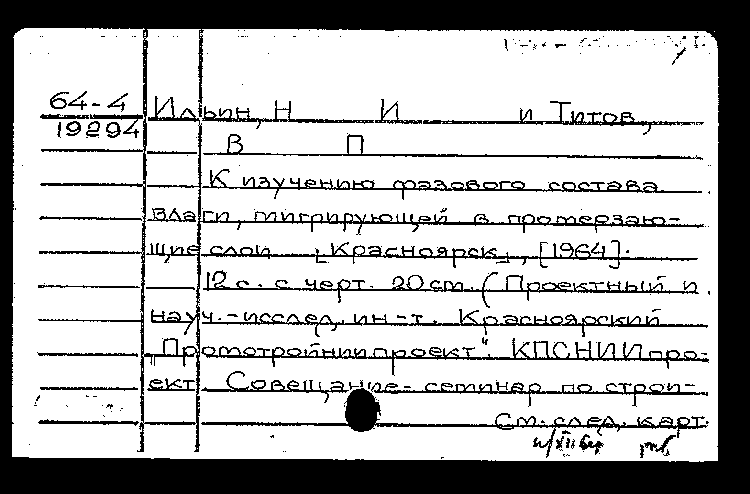 64-4 Ильин, Н И и Титов,
19294 В П
К изучению фазового состава
влаги, мигрирующей в промерзаю-
щие слои. [Красноярск], [1964].
12 с. с черт. 20 см. (Проектный и
науч.-исслед. ин-т. Красноярский
"Промстройниипроект". КПСНИИпро-
ект. Совещание-семинар по строи-
См. след. карт.